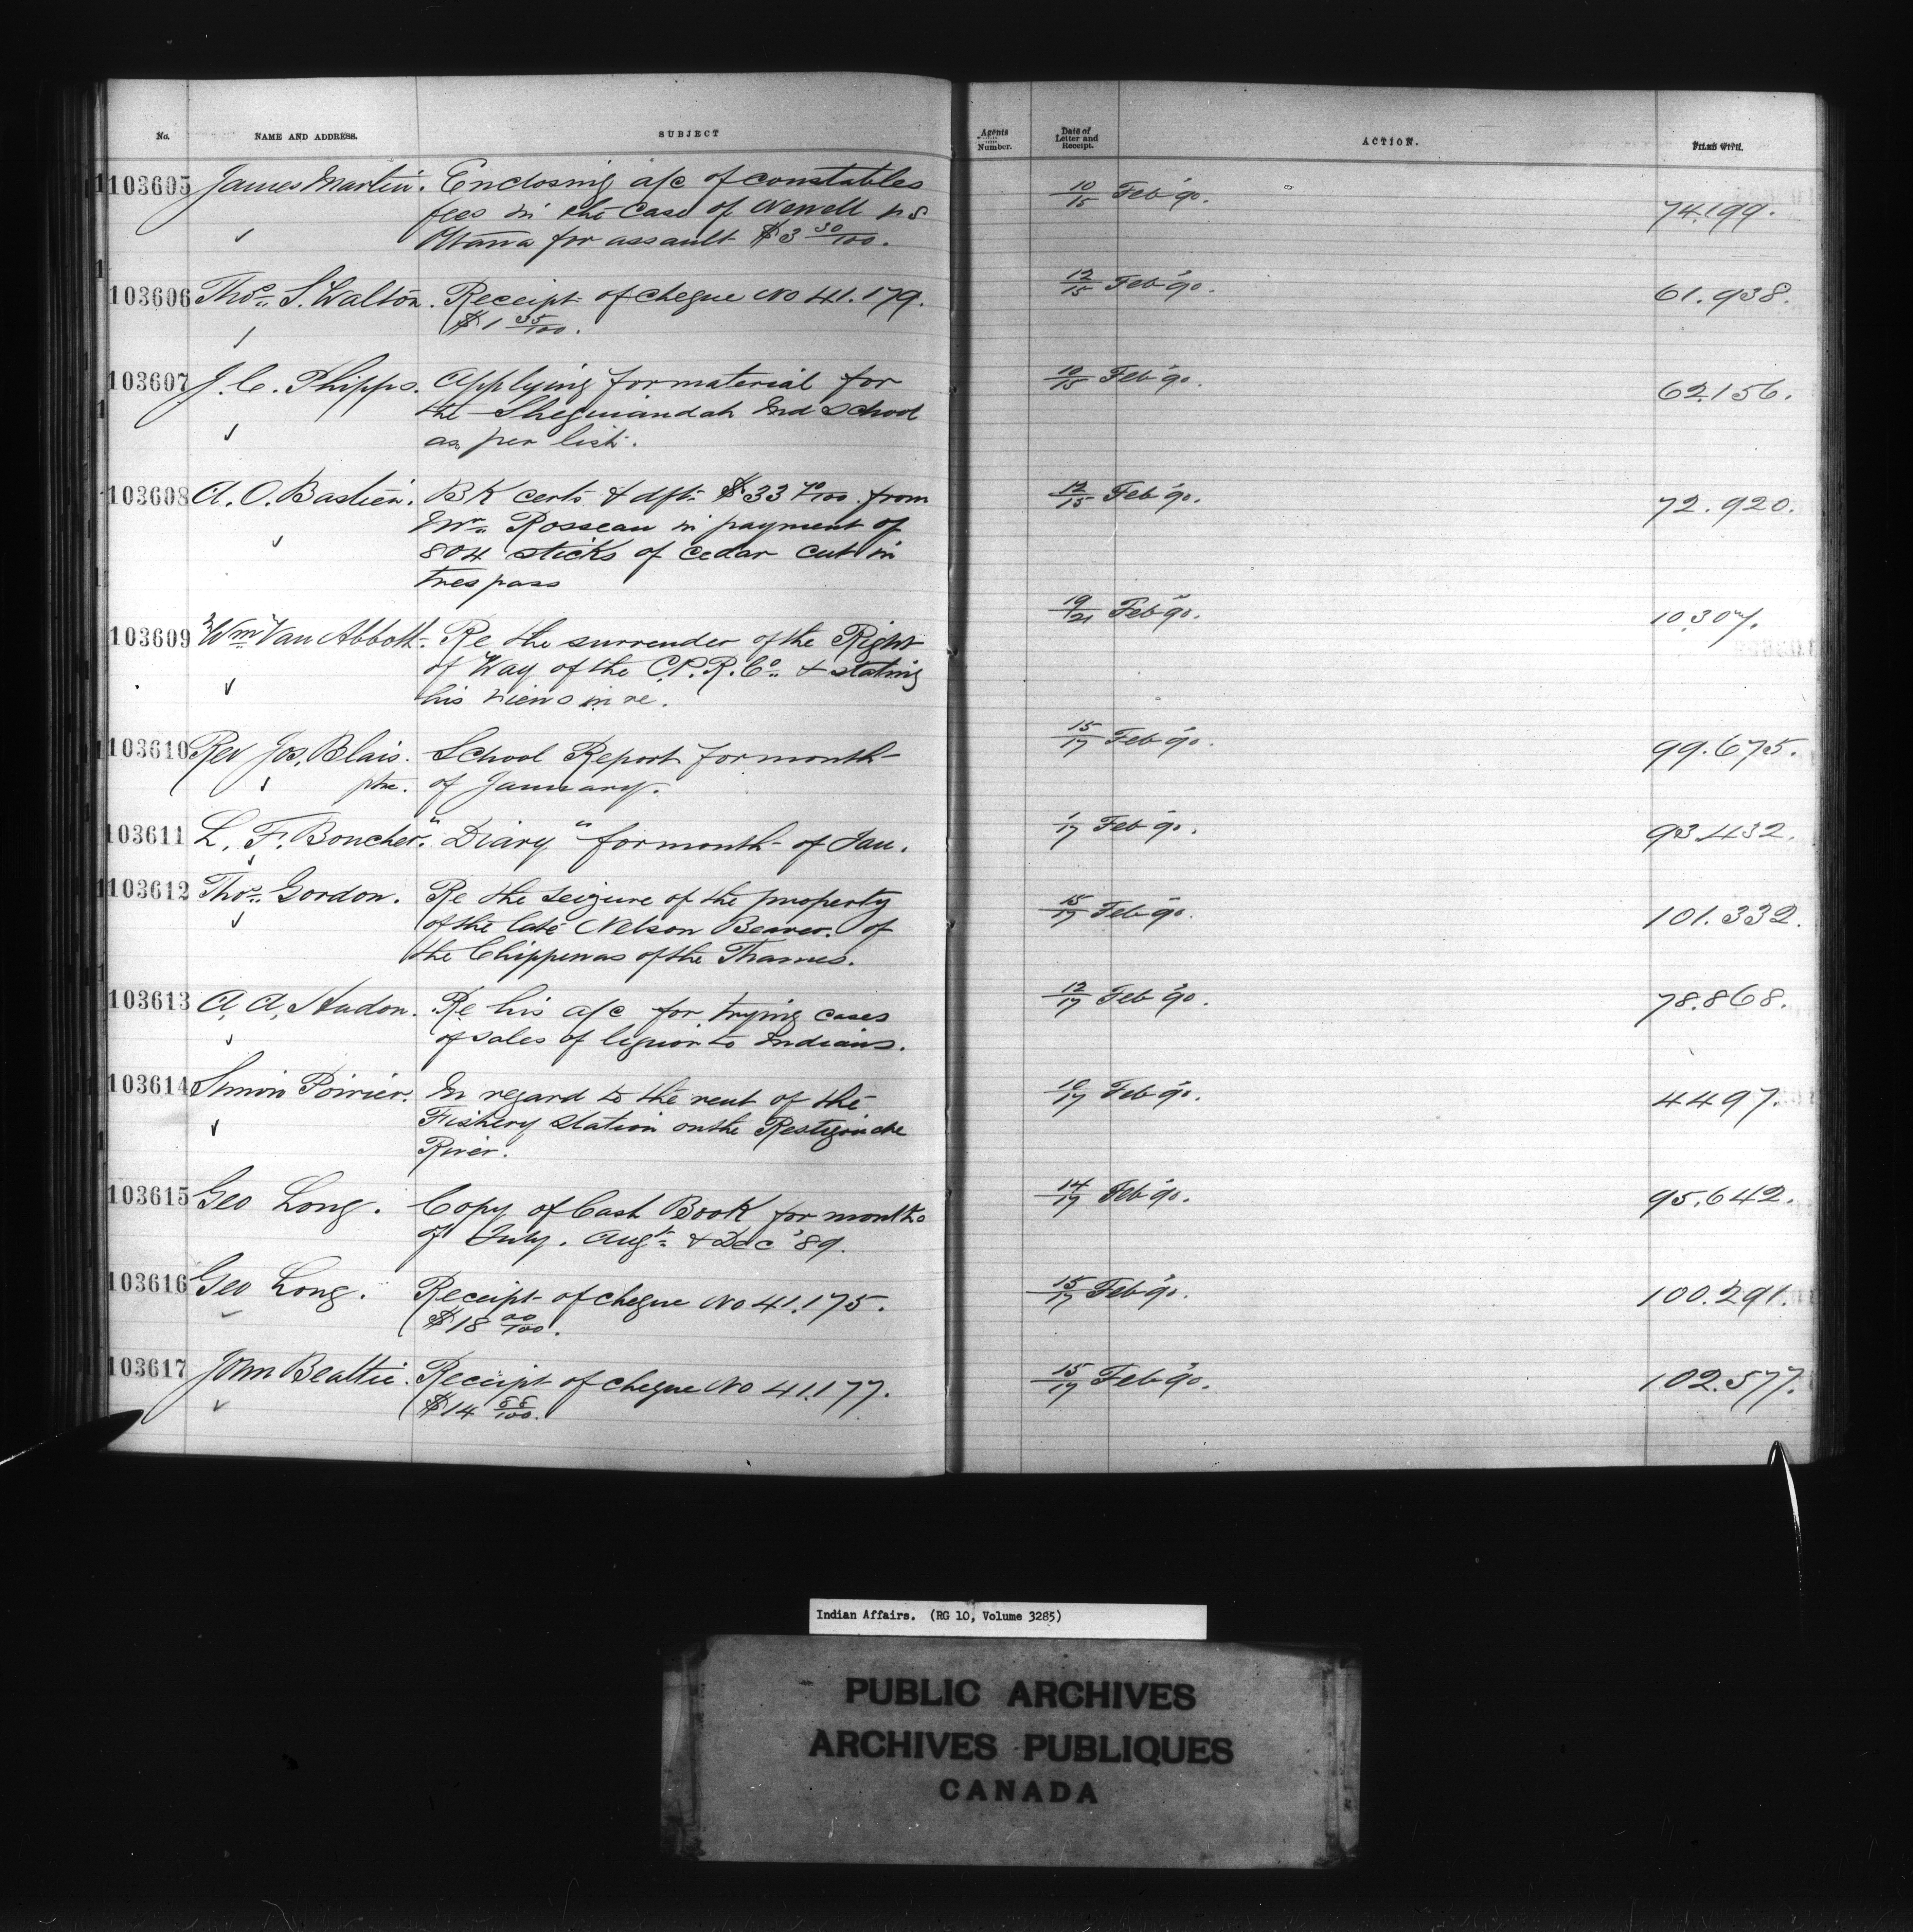 No. NAME AND ADDRESS. SUBJECT Agents Number. Date of Letter and Receipt. ACTION. FILED WITH.
103605 James Martin. Enclosing a/c of constables 10/15 Feb '90. 74.199.
fees in the case of Newell vs
for assault $3 30/100.
103606 Thos. S. Walton. Receipt of cheque No 41.179. 12/15 Feb '90. 61.938.
$1 35/100.
103607 J. C. Phipps. Applying for material for 10/15 Feb '90. 62.156.
the Sheguiandah Ind School
as per list.
103608 A. O. Bastien. BK certs & dft. $33 70/100 from 12/15 Feb '90. 72.920.
Mr. Rosseau in payment of
804 sticks of cedar cut in
trespass
103609 Wm Van Abbott. Re the surrender of the Right 19/21 Feb '90. 10.307.
of Way of the C.P.R. Co. & stating
his views in re.
103610 Rev Jos. Blais. School Report for month 15/17 Feb '90. 99.675.
ptre. of January.
103611 L. F. Boucher. "Diary" for month of Jan. 1/17 Feb '90. 93.432.
103612 Thos. Gordon. Re the seizure of the property 15/17 Feb '90. 101.332.
of the late Nelson Beaver. of
the Chippewas of the Thames.
103613 A. A. Hudon. Re his a/c for trying cases 12/17 Feb '90. 78.868.
of sales of liquor to Indians.
103614 Simon Poirier. In regard to the rent of the 10/17 Feb '90. 4497.
Fishery Station on the Restigouche
River.
103615 Geo Long. Copy of Cash Book for months 14/17 Feb '90. 95.642.
of July. Augt. & Dec '89.
103616 Geo Long. Receipt of cheque No 41.175. 15/17 Feb '90. 100.291.
$18 00/100.
103617 John Beattie. Receipt of cheque No 41.177. 15/17 Feb '90. 102.577.
$14
Indian Affairs. (RG 10, Volume 3285)
PUBLIC ARCHIVES
ARCHIVES PUBLIQUES
CANADA